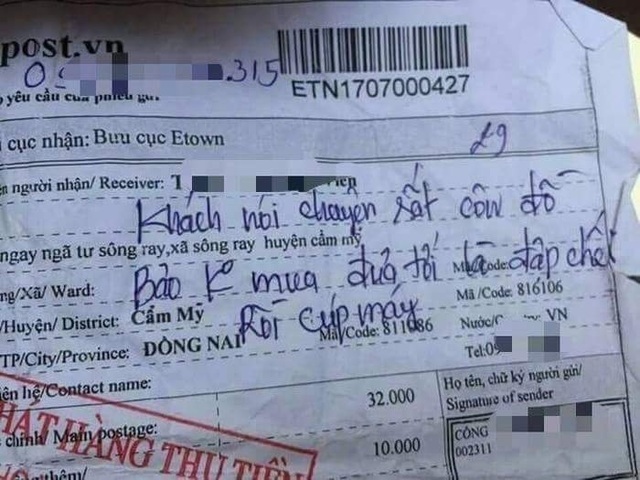 post.vn
.315
ETN1707000427
yêu cầu của phiếu gửi
cục nhận: Bưu cục Etown
29
người nhận/ Receiver: T
Khách nói chuyện rất côn đồ
ngay ngã tư sông ray,xã sông ray huyện cẩm mỹ
Bảo K mua đưa tới là đập chết
ng/Xã/ Ward:
Mã/Code: 816106
/Huyện/ District: Cẩm Mỹ
Rồi cúp máy
TP/City/Province: ĐỒNG NAI
Mã/Code: 811086
VN
Tel:09
iên hệ/Contact name:
32.000
Họ tên, chữ ký người gửi/
Signature of sender
chính/ Main postage:
10.000
CÔNG
002311
PHÁT HÀNG THU TIỀN
thêm/